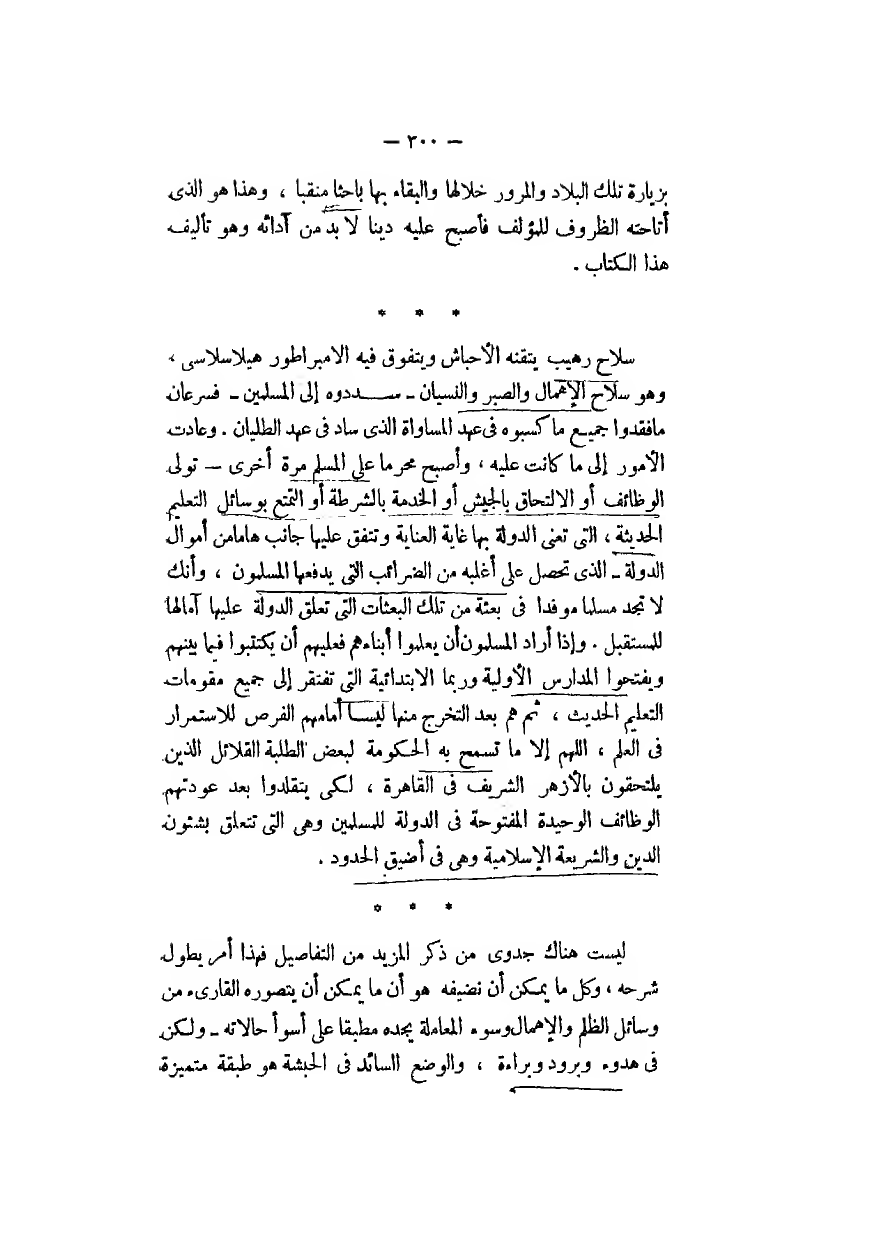 — ٣٠٠ —
بزيارة تلك البلاد والمرور خلالها والبقاء بها باحثا منقبا ، وهذا هو الذى
أتاحته الظروف للمؤلف فأصبح عليه دينا لا بد من آدائه وهو تأليف
هذا الكتاب .
* * *
سلاح رهيب يتقنه الأحباش ويتفوق فيه الامبراطور هيلاسلاسى ،
وهو سلاح الإهمال والصبر والنسيان ـ سددوه إلى المسلمين ـ فسرعان
مافقدوا جميع ما كسبوه فى عهد المساواة الذى ساد فى عهد الطليان . وعادت
الأمور إلى ما كانت عليه ، وأصبح محرما على المسلم مرة أخرى — تولى
الوظائف أو الالتحاق بالجيش أو الخدمة بالشرطة أو التمتع بوسائل التعليم
الحديثة ، التى تعنى الدولة بها غاية العناية وتنفق عليها جانب هامامن أموال
الدولة ـ الذى تحصل على أغلبه من الضرائب التى يدفعها المسلمون ، وأنك
لا تجد مسلما موفدا فى بعثة من تلك البعثات التى تعلق الدولة عليها آمالها
للمستقبل . وإذا أراد المسلمون أن يعلموا أبناءهم فعليهم أن يكتتبوا فيما بينهم
ويفتحوا المدارس الأولية وربما الابتدائية التى تفتقر إلى جميع مقومات
التعليم الحديث ، ثم هم بعد التخرج منها ليس أمامهم الفرص للاستمرار
فى العلم ، اللهم إلا ما تسمح به الحكومة لبعض الطلبة القلائل الذين
يلتحقون بالأزهر الشريف فى القاهرة ، لكى يتقلدوا بعد عودتهم
الوظائف الوحيدة المفتوحة فى الدولة للمسلمين وهى التى تتعلق بشئون
الدين والشريعة الإسلامية وهى فى أضيق الحدود .
* * *
ليست هناك جدوى من ذكر المزيد من التفاصيل فهذا أمر يطول
شرحه ، وكل ما يمكن أن نضيفه هو أن ما يمكن أن يتصوره القارىء من
وسائل الظلم والإهمال وسوء المعاملة يجده مطبقا على أسوأ حالاته ـ ولكن
فى هدوء وبرود وبراءة ، والوضع السائد فى الحبشة هو طبقة متميزة